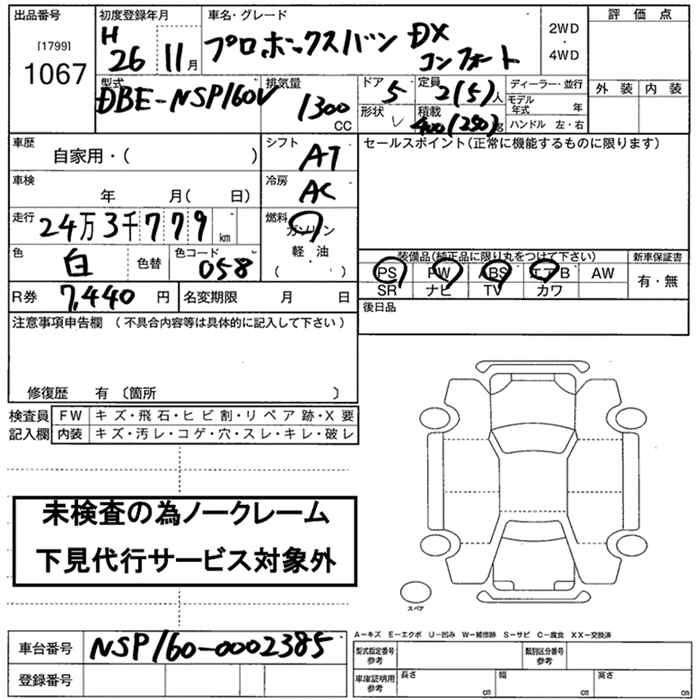 出品番号
[1799]
1067
初度登録年月
H 26 11月
車名・グレード
プロボックスバン DX コンフォート
2WD
・
4WD
評価点
外装 内装
型式
DBE-NSP160V
排気量
1300 CC
ドア 5
形状 V
定員 2(5)人
積載 400(250)kg
ディーラー・並行
モデル年式 年
ハンドル 左・右
車歴
自家用・( )
シフト AT
セールスポイント(正常に機能するものに限ります)
車検
年 月( 日)
冷房 AC
走行 24万3千779km
燃料 ガソリン
軽・油
( )
色 白 色替 色コード 058
装備品(純正品に限り丸をつけて下さい)
新車保証書
PS PW ABS エアB AW
SR ナビ TV カワ
有・無
R券 7,440円 名変期限 月 日
後日品
注意事項申告欄 (不具合内容等は具体的に記入して下さい)
修復歴 有 〔箇所 〕
検査員記入欄
FW キズ・飛石・ヒビ割・リペア跡・X要
内装 キズ・汚レ・コゲ・穴・スレ・キレ・破レ
未検査の為ノークレーム
下見代行サービス対象外
スペア
車台番号 NSP160-0002385
登録番号
A−キズ E−エクボ U−凹み W−補修跡 S−サビ C−腐食 XX−交換済
型式指定番号 参考
類別区分番号 参考
車庫証明用 参考
長さ cm 幅 cm 高さ cm